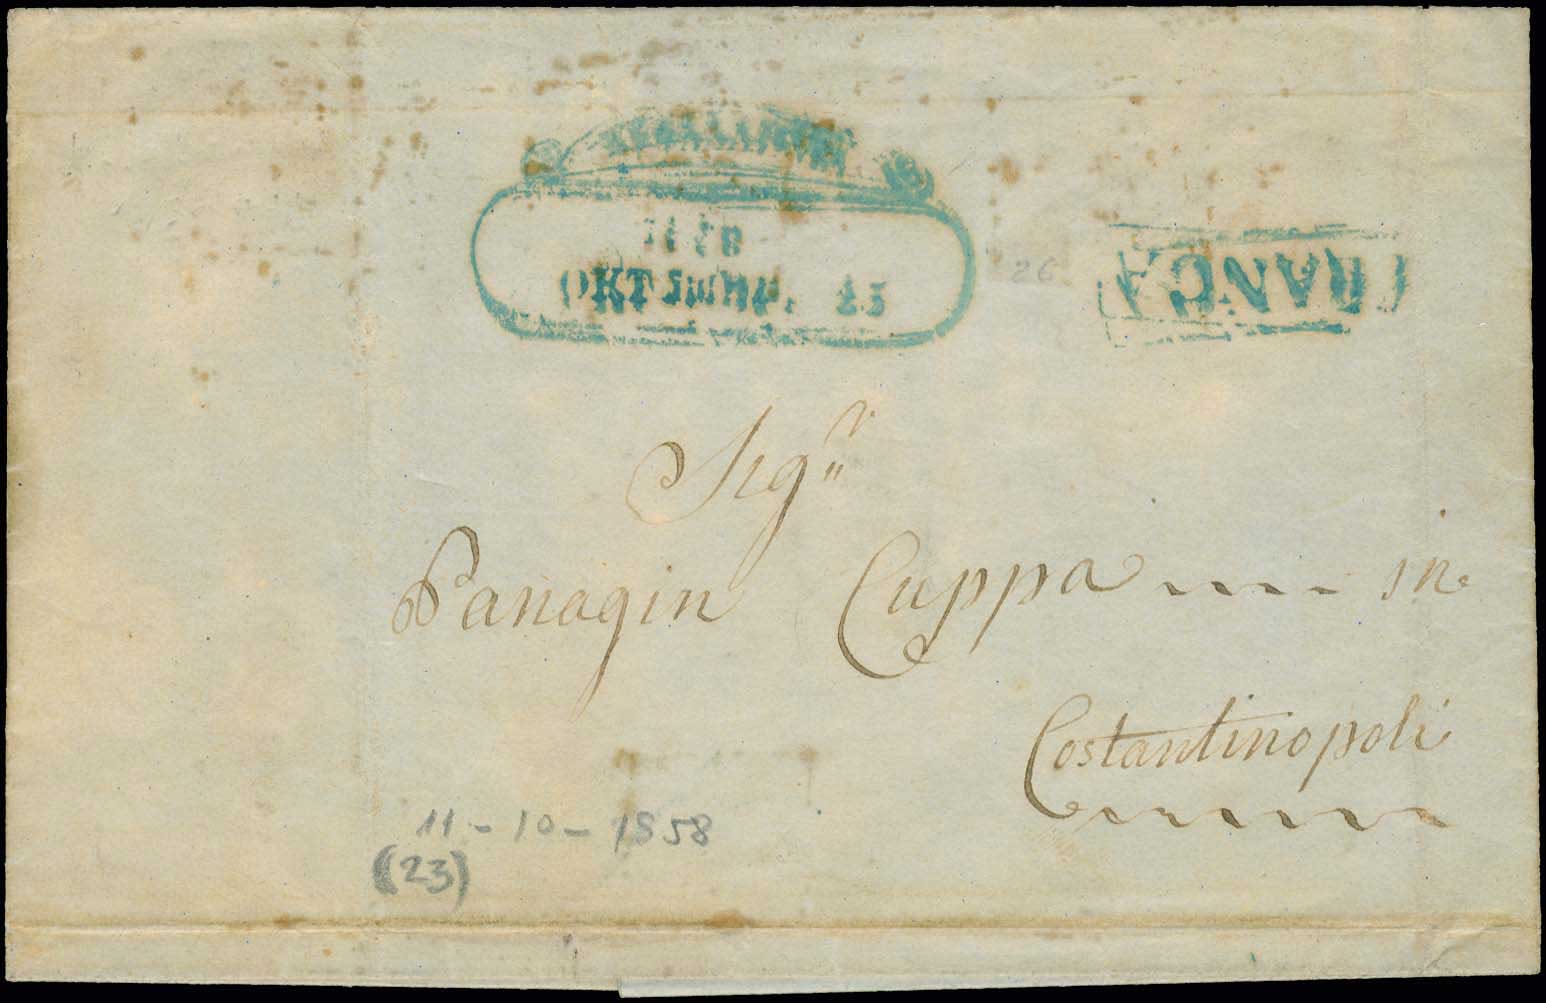 26
FRANCA
Sigʳ
Panagin Cuppa in
Costantinopoli
11-10-1858
(23)